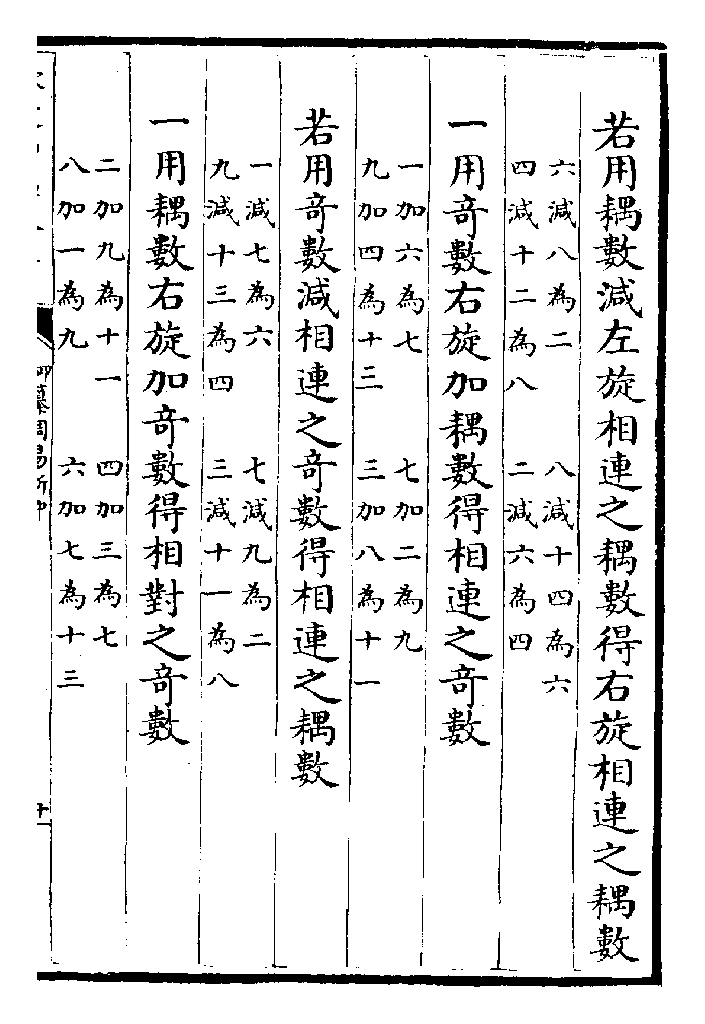 若用耦數減左旋相連之耦數得右旋相連之耦數
六減八為二　八減十四為六
四減十二為八　二減六為四
一用奇數右旋加耦數得相連之奇數
一加六為七　七加二為九
九加四為十三　三加八為十一
若用奇數減相連之奇數得相連之耦數
一減七為六　七減九為二
九減十三為四　三減十一為八
一用耦數右旋加奇數得相對之奇數
二加九為十一　四加三為七
八加一為九　六加七為十三